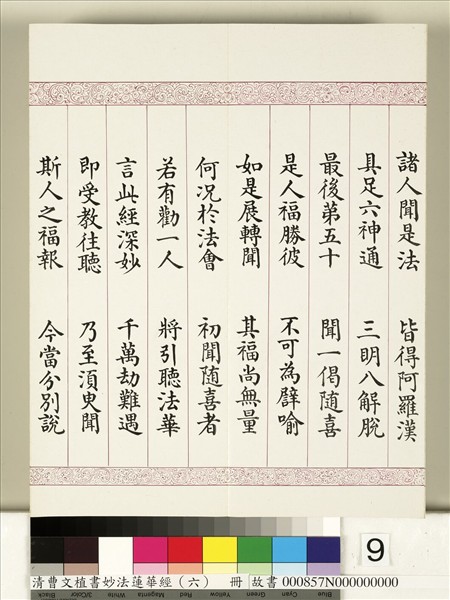 諸人聞是法 皆得阿羅漢
具足六神通 三明八解脫
最後第五十 聞一偈隨喜
是人福勝彼 不可為譬喻
如是展轉聞 其福尚無量
何況於法會 初聞隨喜者
若有勸一人 將引聽法華
言此經深妙 千萬劫難遇
即受教往聽 乃至須臾聞
斯人之福報 今當分別說
9
Black 3/Color White Magenta Red Yellow Green Cyan Blue
清曹文植書妙法蓮華經（六） 冊 故書 000857N000000000